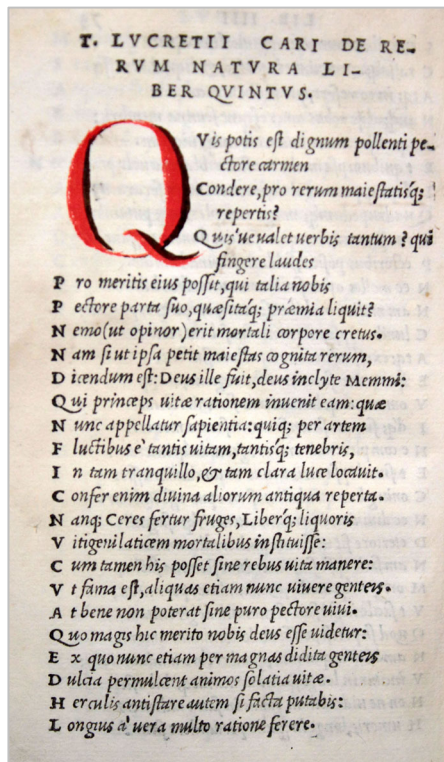 T. LVCRETII CARI DE RE-
RVM NATVRA LI-
BER QVINTVS.
QVis potis est dignum pollenti pe-
ctore carmen
Condere, pro rerum maiestatisq;
repertis?
Quis'ue ualet uerbis tantum? qui
fingere laudes
P ro meritis eius possit, qui talia nobis
P ectore parta suo, quæsitaq́; præmia liquit?
N emo (ut opinor) erit mortali corpore cretus.
N am si ut ipsa petit maiestas cognita rerum,
D icendum est: Deus ille fuit, deus inclyte Memmi:
Q ui princeps uitæ rationem inuenit eam: quæ
N unc appellatur sapientia: quiq; per artem
F luctibus e' tantis uitam, tantisq́; tenebris,
I n tam tranquillo, & tam clara luce locauit.
C onfer enim diuina aliorum antiqua reperta.
N anq; Ceres fertur fruges, Liberq́; liquoris
V itigeni laticem mortalibus instituisse:
C um tamen his posset sine rebus uita manere:
V t fama est, aliquas etiam nunc uiuere genteis.
A t bene non poterat sine puro pectore uiui.
Q uo magis hic merito nobis deus esse uidetur:
E x quo nunc etiam per magnas didita genteis
D ulcia permulcent animos solatia uitæ.
H erculis antistare autem si facta putabis:
L ongius a' uera multo ratione ferere.